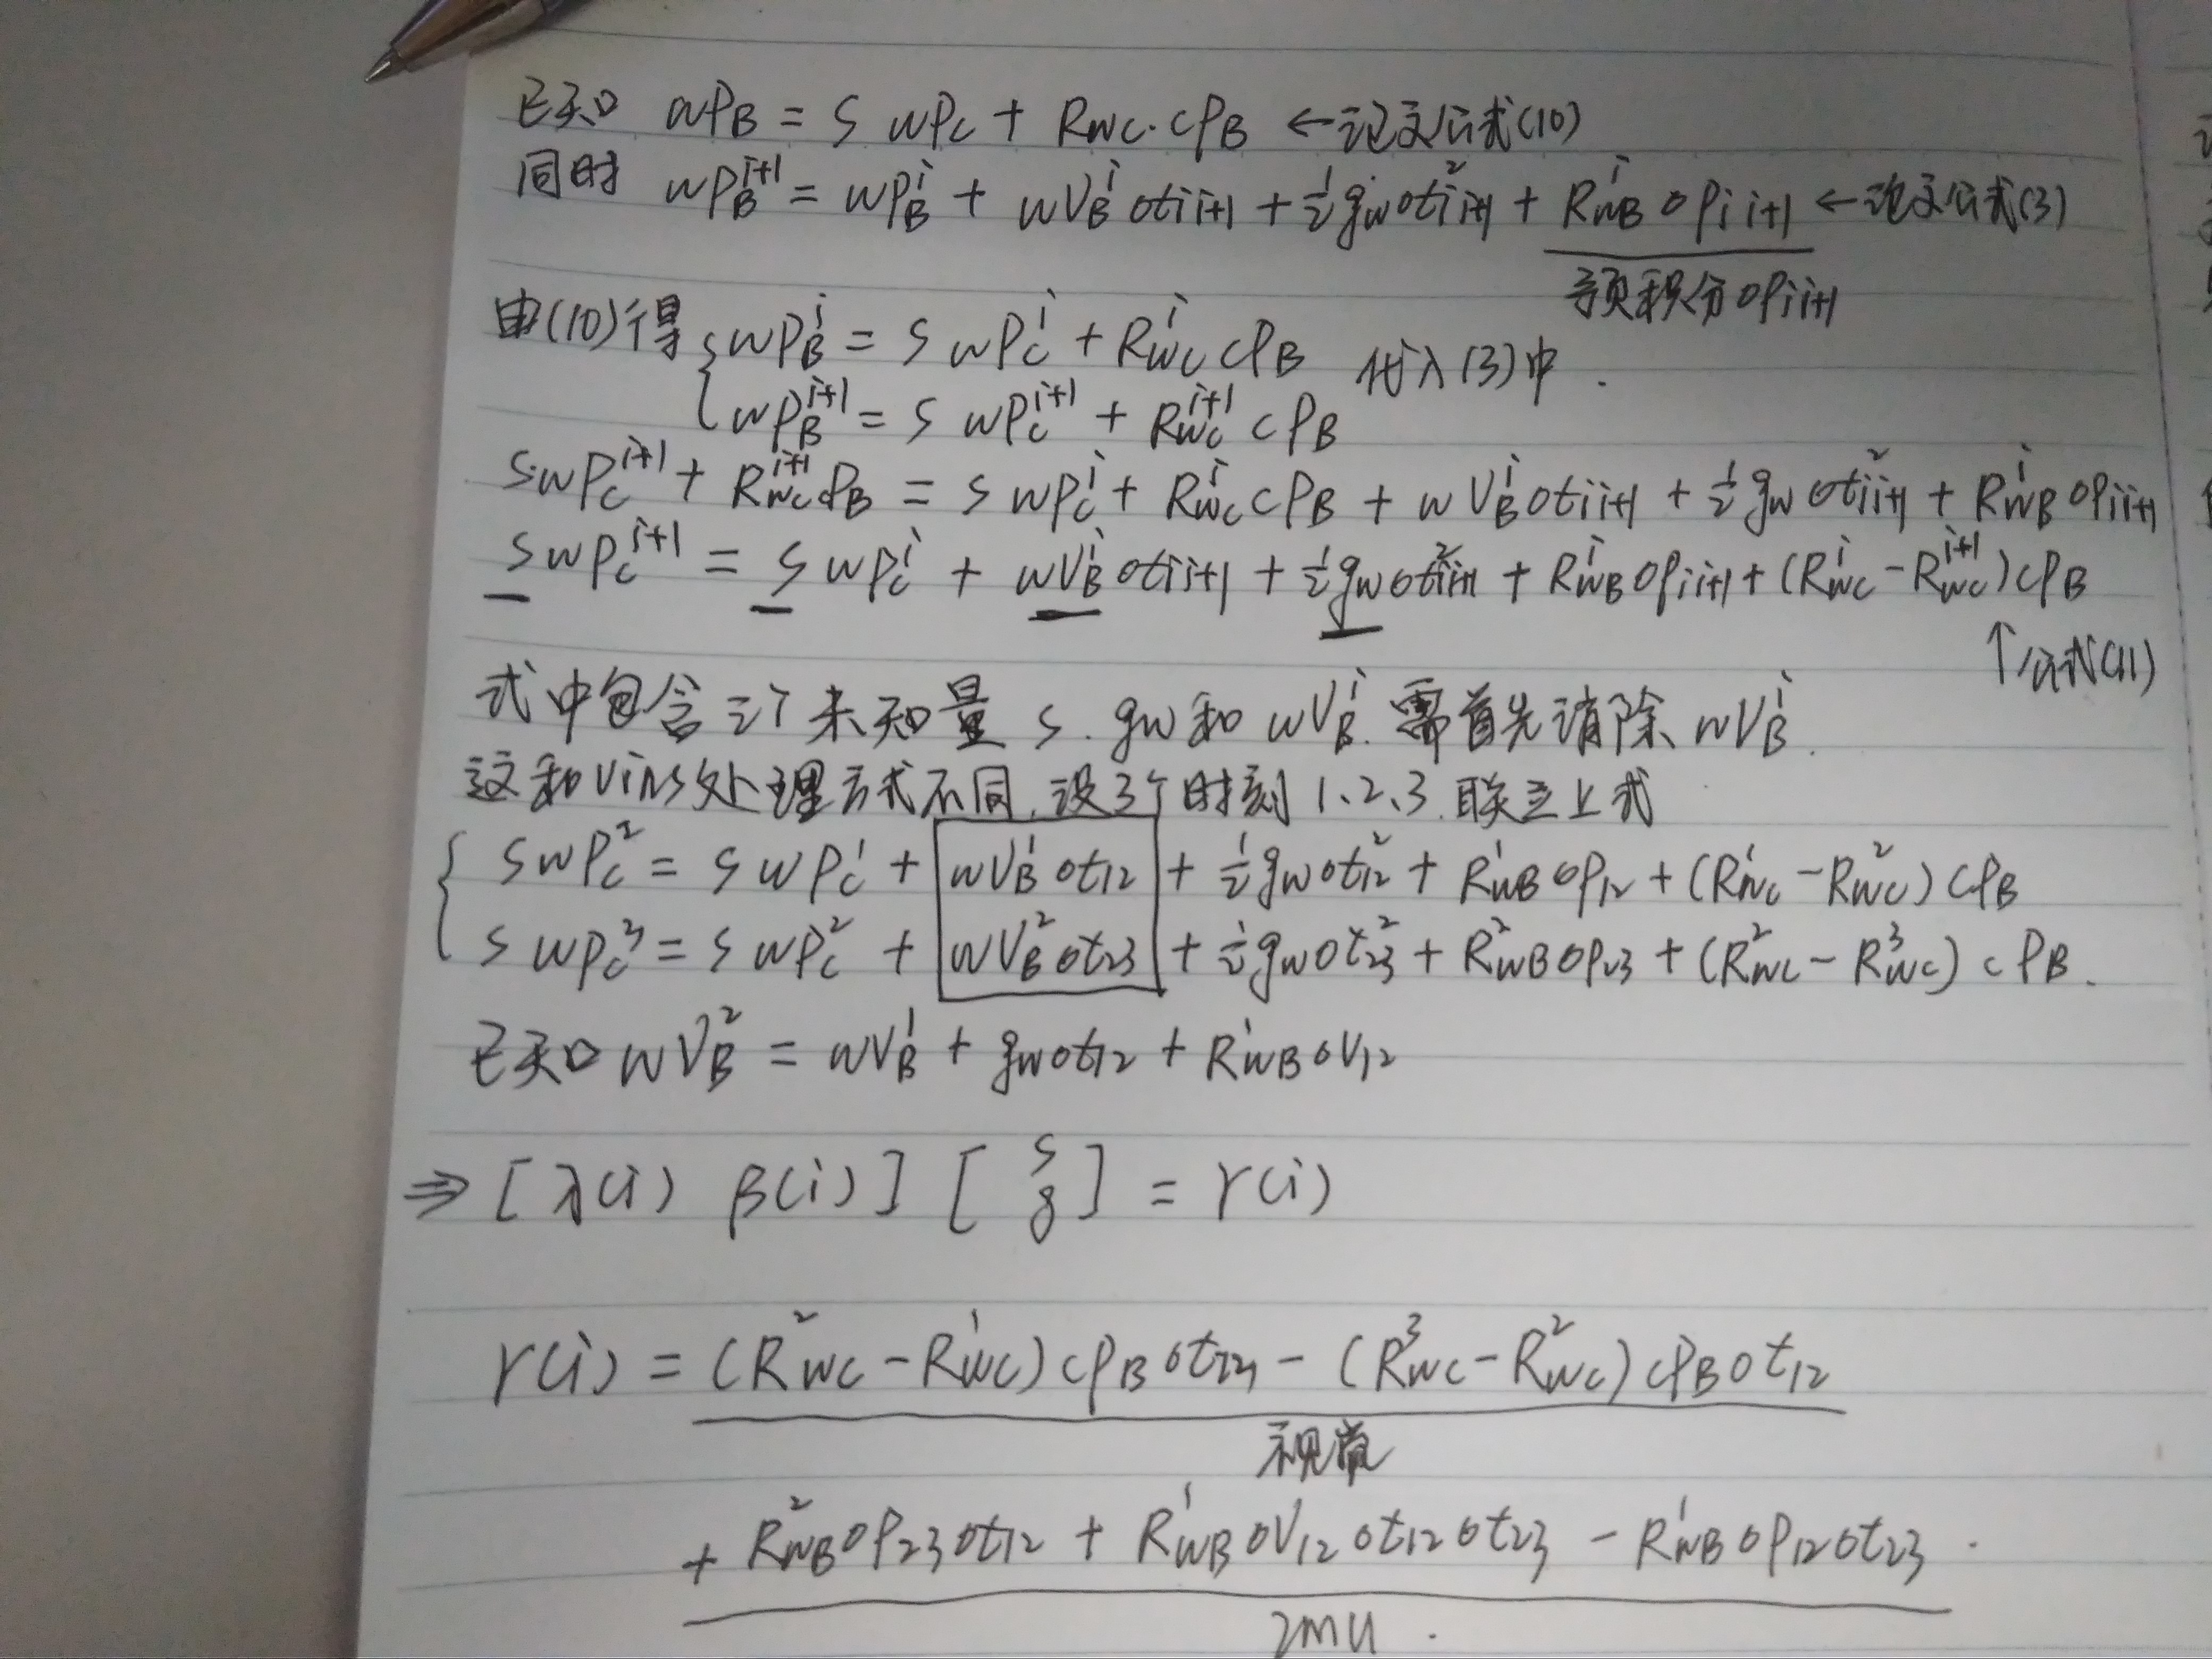 已知 wPB = S wPc + Rwc·cPB ←论文公式(10)
同时 wPB^{i+1} = wPB^i + wVB^i Δt_{ii+1} + 1/2 gw Δt²_{ii+1} + RwB^i ΔP_{ii+1} ←论文公式(3)
预积分ΔP_{ii+1}
由(10)得 { wPB^i = S wPc^i + Rwc^i cPB 代入(3)中.
wPB^{i+1} = S wPc^{i+1} + Rwc^{i+1} cPB
S wPc^{i+1} + Rwc^{i+1} cPB = S wPc^i + Rwc^i cPB + wVB^i Δt_{ii+1} + 1/2 gw Δt²_{ii+1} + RwB^i ΔP_{ii+1}
S wPc^{i+1} = S wPc^i + wVB^i Δt_{ii+1} + 1/2 gw Δt²_{ii+1} + RwB^i ΔP_{ii+1} + (Rwc^i - Rwc^{i+1}) cPB
↑公式(11)
式中包含三个未知量 S. gw和 wVB^i. 需首先消除 wVB^i.
这和vins处理方式不同,设3个时刻1、2、3.联立上式
{ S wPc² = S wPc¹ + wVB¹ Δt12 + 1/2 gw Δt12² + RwB¹ ΔP12 + (Rwc¹ - Rwc²) cPB
S wPc³ = S wPc² + wVB² Δt23 + 1/2 gw Δt23² + RwB² ΔP23 + (Rwc² - Rwc³) cPB.
已知 wVB² = wVB¹ + gw Δt12 + RwB¹ ΔV12
⇒ [ λ(i) β(i) ] [ S g ] = γ(i)
γ(i) = (Rwc² - Rwc¹) cPB Δt23 - (Rwc³ - Rwc²) cPB Δt12
视觉
+ RwB² ΔP23 Δt12 + RwB¹ ΔV12 Δt12 Δt23 - RwB¹ ΔP12 Δt23.
IMU.